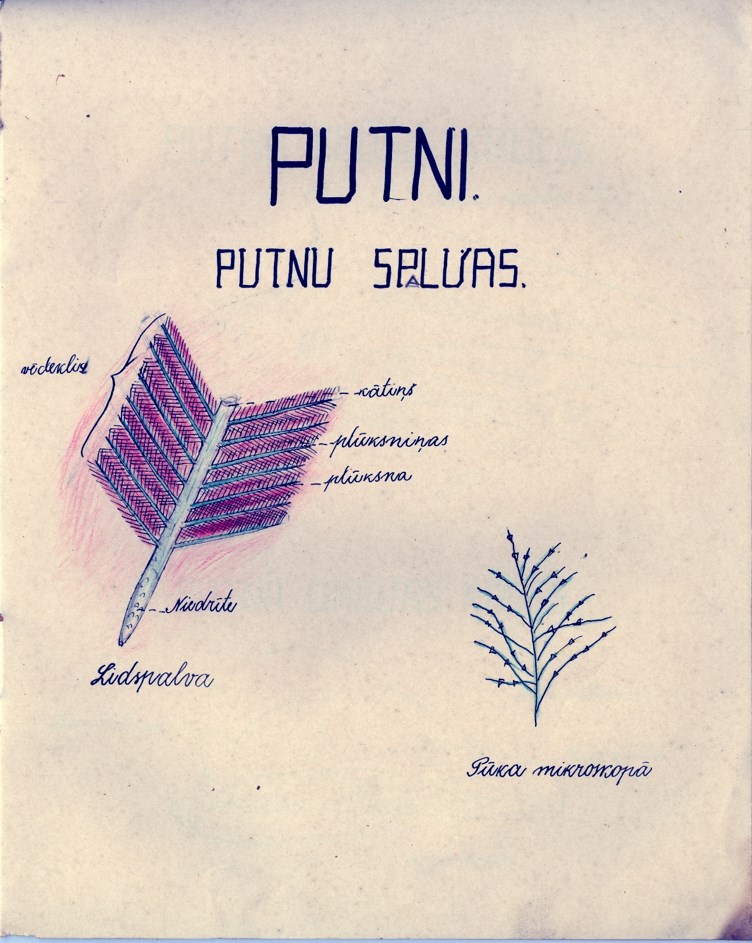 PUTNI.
PUTNU SPALVAS.
vēdeklis
kātiņš
plūksniņas
plūksna
Niedrīte
Lidspalva
Pūka mikroskopā